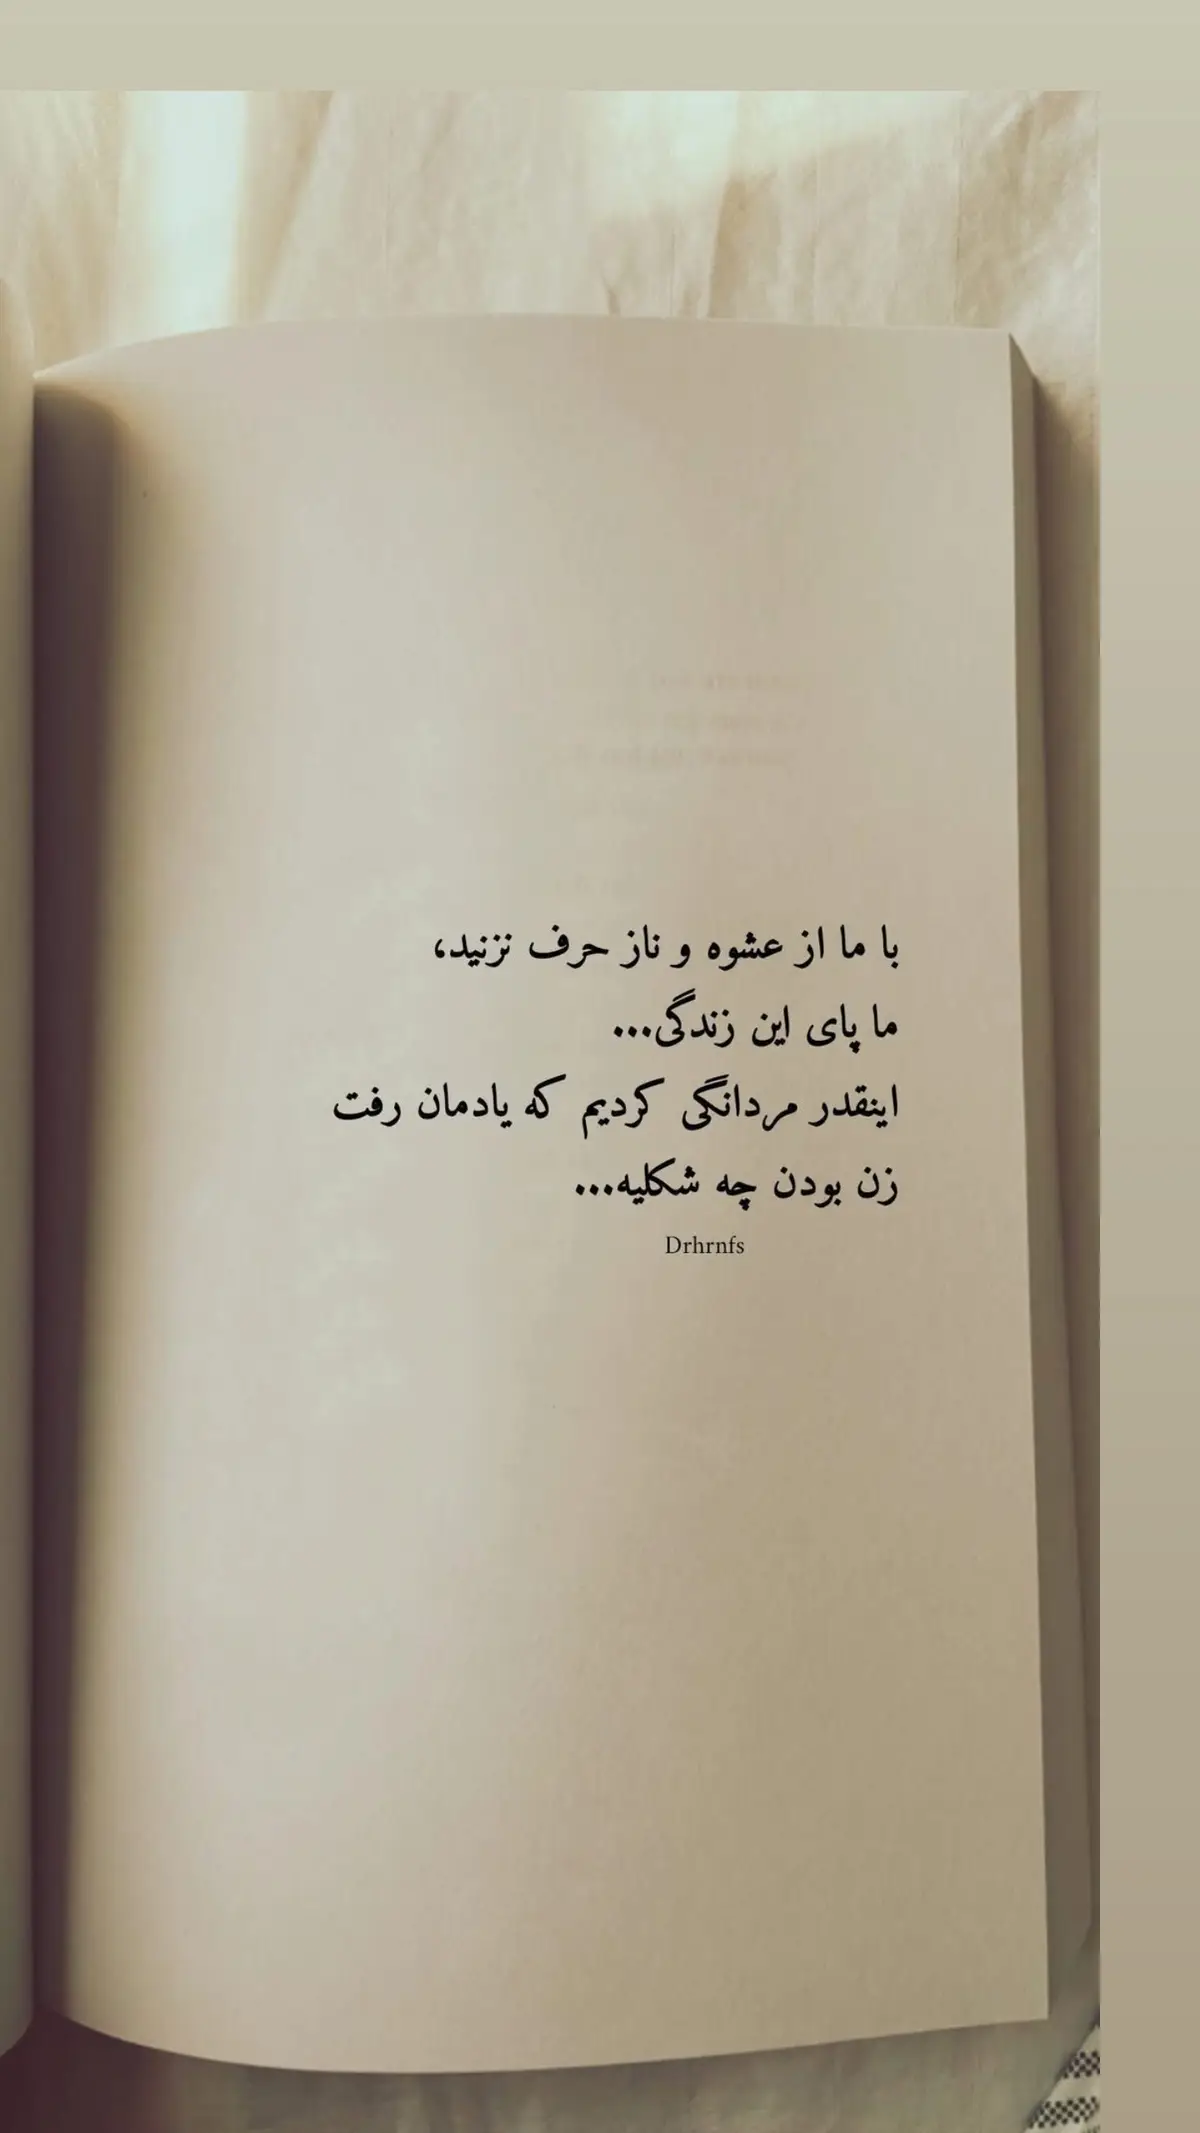 با ما از عشوه و ناز حرف نزنید،
ما پای این زندگی...
اینقدر مردانگی کردیم که یادمان رفت
زن بودن چه شکلیه...
Drhrnfs